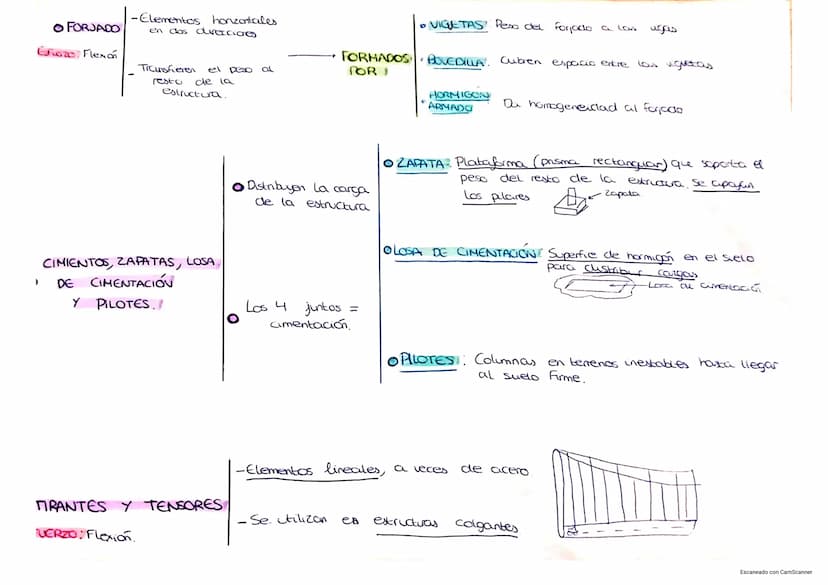 FORJADO
Esfuerzo: Flexión
- Elementos horizontales
en dos direcciones
- Transfieren el peso al
resto de la
estructura.
FORMADOS
POR:
VIGUETAS: Peso del forjado a las vigas
BOVEDILLA: Cubren espacio entre las viguetas
HORMIGÓN
ARMADO
Da homogeneidad al forjado
CIMIENTOS, ZAPATAS, LOSA
DE CIMENTACIÓN
Y PILOTES.
Distribuyen la carga
de la estructura
Los 4 juntos =
cimentación.
ZAPATA: Plataforma (prisma rectangular) que soporta el
peso del resto de la estructura. Se apoyan
los pilares
zapata
LOSA DE CIMENTACIÓN: Superficie de hormigón en el suelo
para distribuir cargas
Losa de cimentación
PILOTES: Columnas en terrenos inestables hasta llegar
al suelo firme.
TIRANTES Y TENSORES
: Flexión.
- Elementos lineales, a veces de acero
- Se utilizan en estructuras colgantes
Escaneado con CamScanner